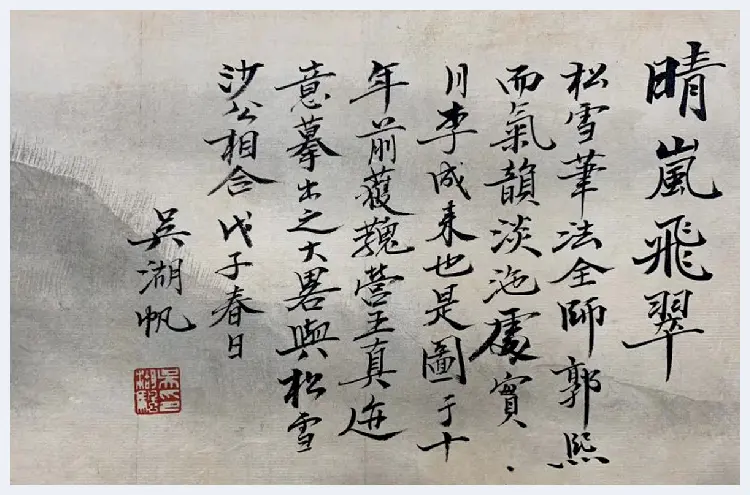 晴嵐飛翠
松雪筆法全師郭熙
而氣韻淡沲處實
李成來也是圖于十
年前獲營真迹
意摹出之大畧與松雪
沙公相合 戊子春日
吳湖帆